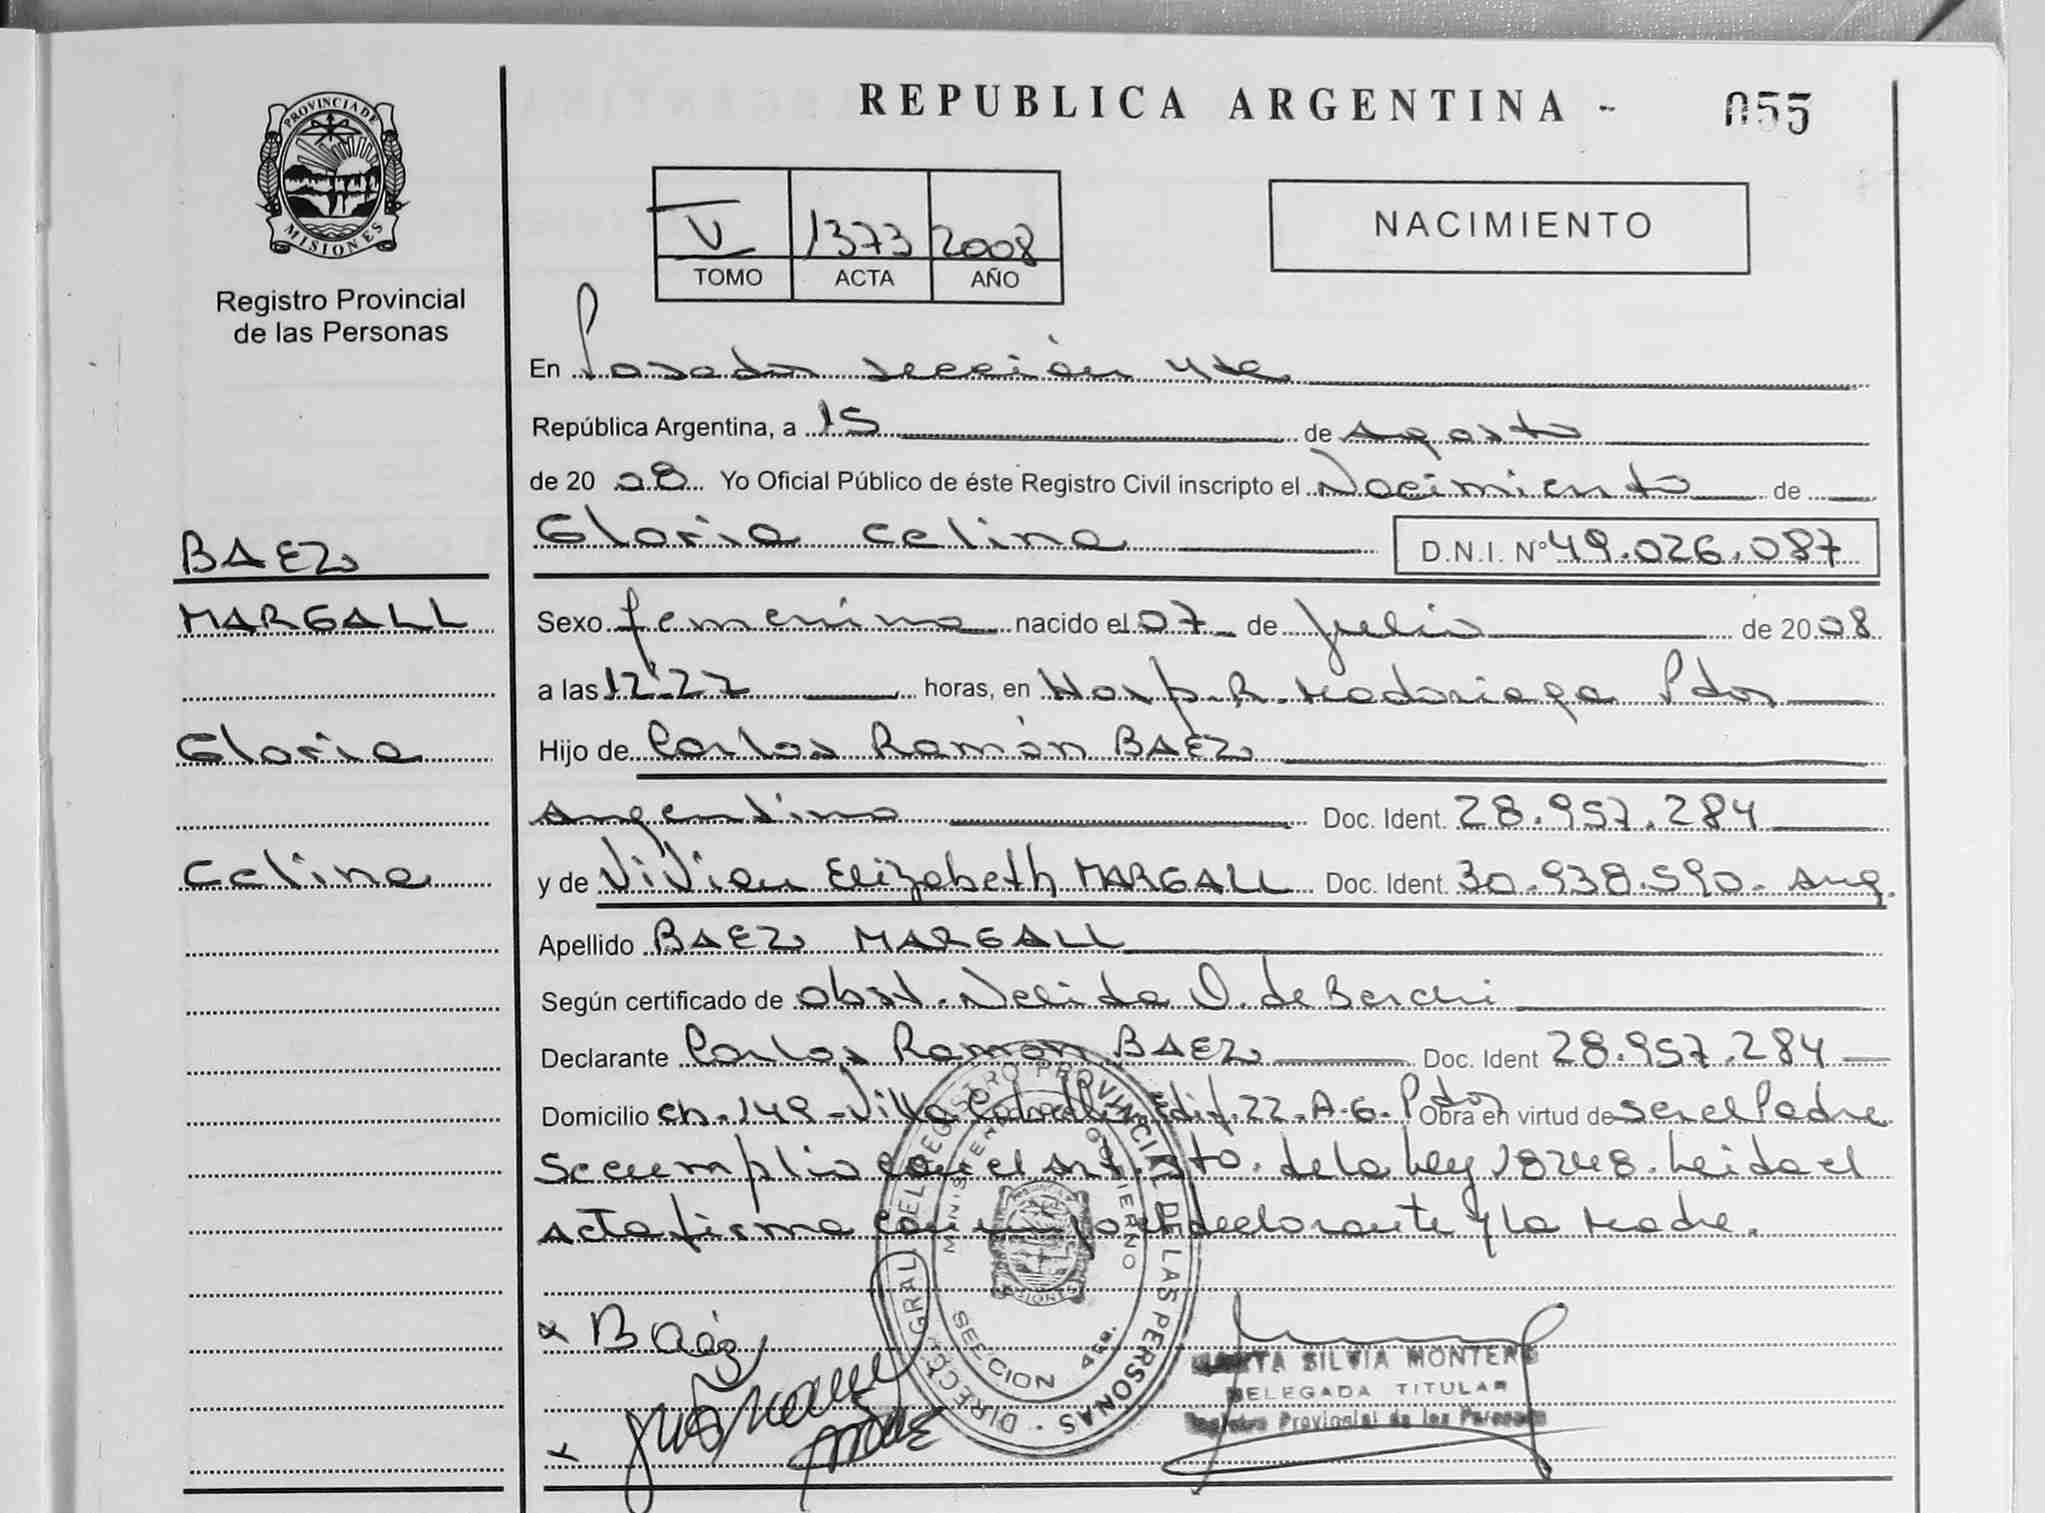 REPUBLICA ARGENTINA - 055
PROVINCIA DE
MISIONES
Registro Provincial
de las Personas
V 1373 2008
TOMO ACTA AÑO
NACIMIENTO
En Posadas sección 4ta
República Argentina, a 15 de Agosto
de 2008 Yo Oficial Público de éste Registro Civil inscripto el Nacimiento de
Gloria Celina D.N.I. Nº 49.026.087
BAEZ
MARGALL
Gloria
Celina
Sexo femenino nacido el 07 de Julio de 2008
a las 12:27 horas, en Hosp. R. Madariaga Pdas
Hijo de Carlos Ramón BAEZ
Argentino Doc. Ident. 28.957.284
y de Vivian Elizabeth MARGALL Doc. Ident. 30.938.590. Arg.
Apellido BAEZ MARGALL
Según certificado de obst. Nelida O. de
Declarante Carlos Ramon BAEZ Doc. Ident 28.957.284
Domicilio ch. 149 - Villa Cabello edif. 22. A-6. Pdas Obra en virtud de ser el Padre
Se cumplio con el art. de la Ley 18248. Leida el
acta firma con el declarante y la Madre.
DIRECC. GRAL. DEL REGISTRO PROVINCIAL DE LAS PERSONAS
MINISTERIO GOBIERNO
MISIONES
SECCION 4ta.
Baéz
SILVIA MONTERO
DELEGADA TITULAR
Registro Provincial de las Personas